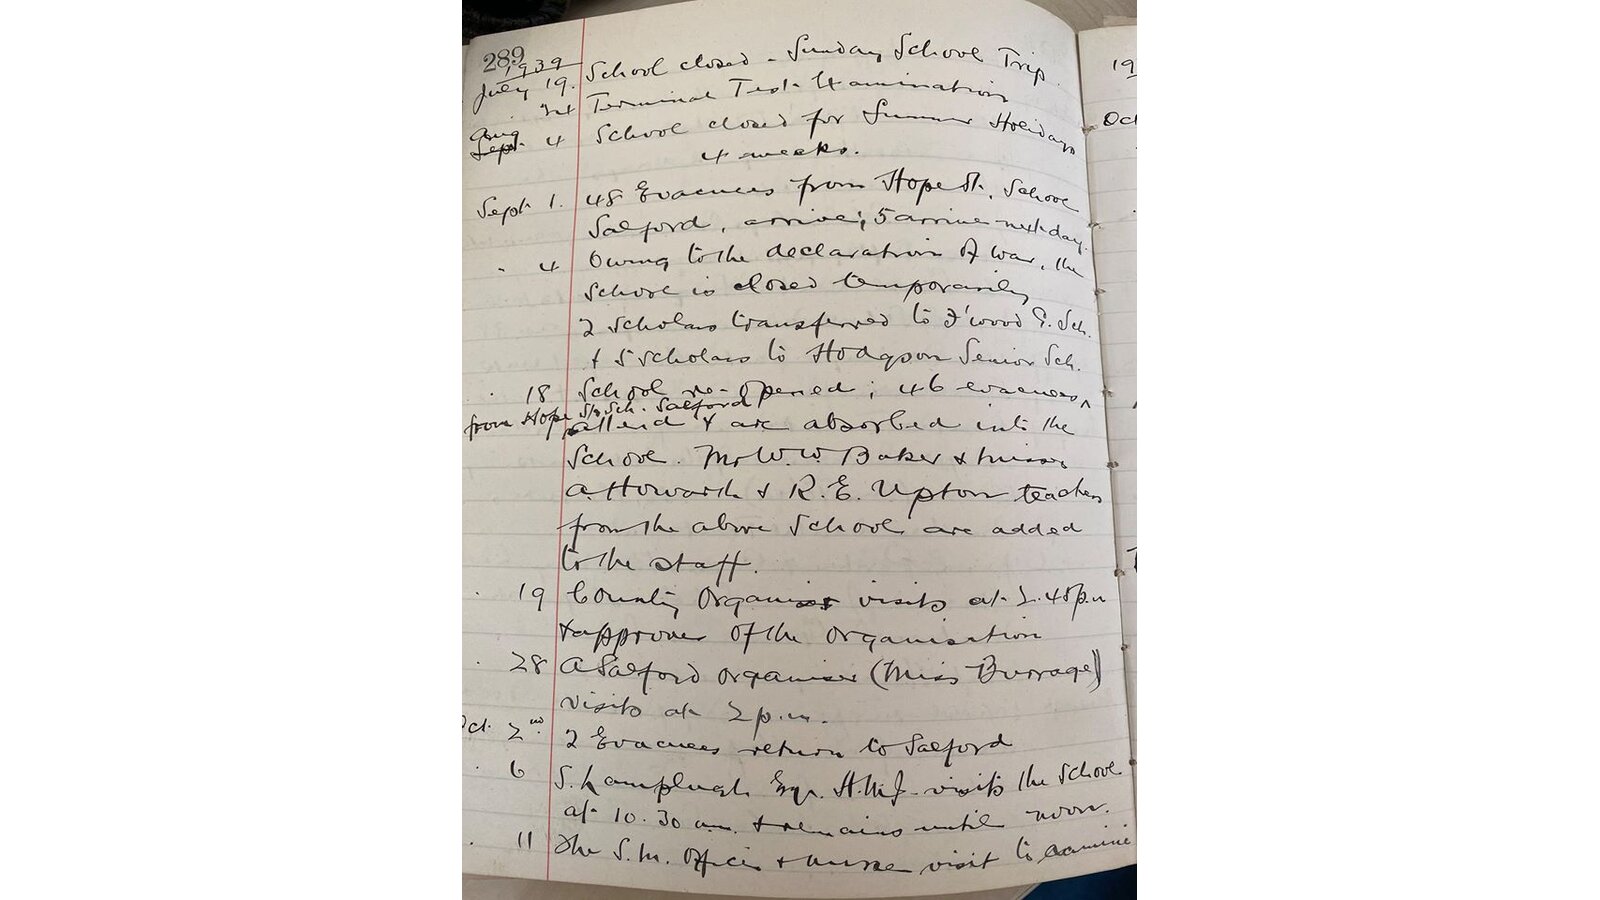 289
1939
July 19. School closed - Sunday School Trip.
Terminal Test Examination
Aug Sept. 4 School closed for Summer Holidays
4 weeks.
Sept. 1. 48 Evacuees from Hope St. School
Salford, arrive; 5 arrive next day.
" 4 Owing to the declaration of war, the
School is closed temporarily
2 scholars transferred to F'wood C. Sch.
& 5 scholars to Hodgson Senior Sch.
" 18 School re-opened; 46 evacuees,
from Hope St. Sch. Salford
attend & are absorbed into the
School. Mr W. W. Baker & Misses
A. Howarth & R. E. Upton teachers
from the above School are added
to the staff.
" 19 County Organiser visits at 2.45 p.m
& approves of the organisation
" 28 A Salford organiser (Miss Burrage)
visits at 2 p.m.
Oct. 2nd. 2 Evacuees return to Salford
" 6 S. Lamplugh Esqr. H.M.I. visits the School
at 10.30 a.m. & remains until noon.
" 11 The S.M. Officer & nurse visit to examine
19
Oct